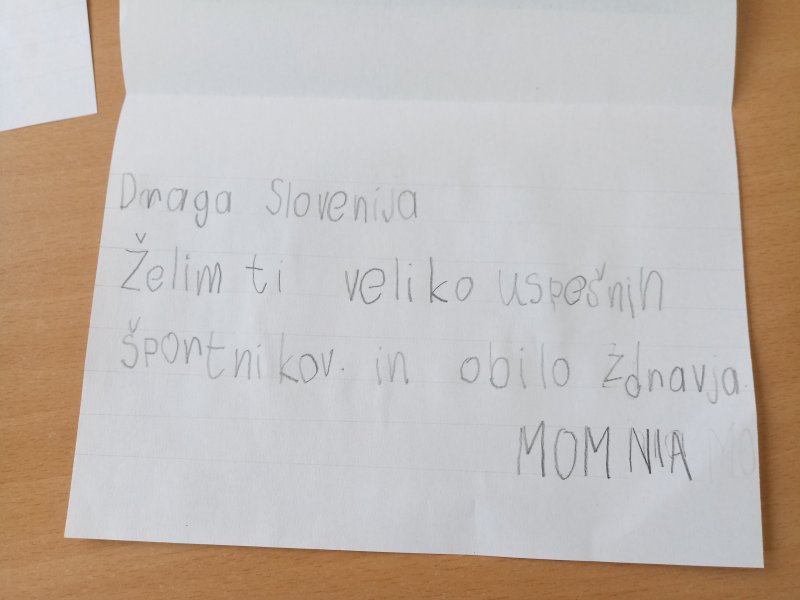 Draga Slovenija
Želim ti veliko uspešnih
športnikov. in obilo zdravja.
MOMNIA